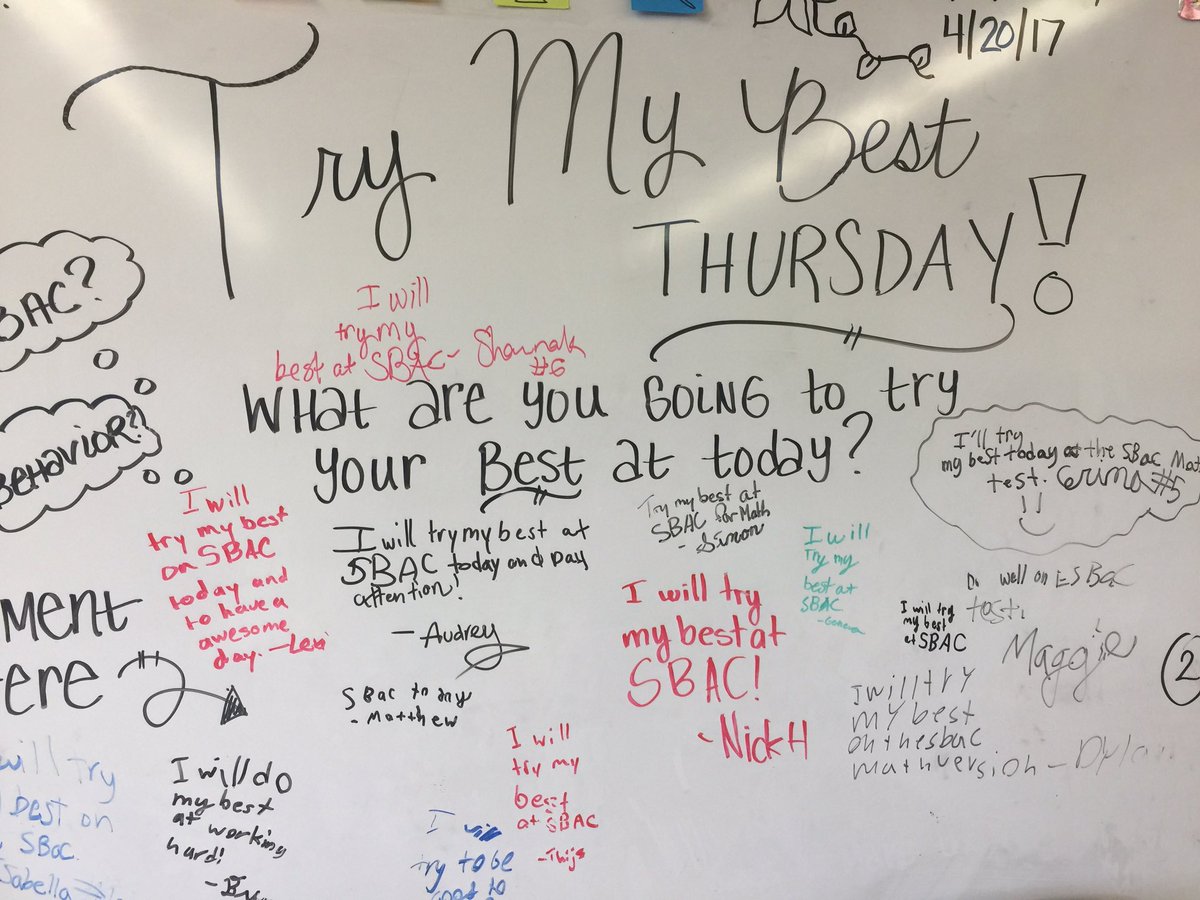 4/20/17
Try My Best
THURSDAY!
BAC?
BEHAVIOR?
I will
try my
best at SBAC-
#6
What are you GOING to try
your Best at today?
I'll try
my best today at the SBAC Mat
test. #5
I will
try my best
on SBAC
today and
to have a
awesome
day. -Lexi
I will try my best at
SBAC today and pay
attention!
-Audrey
Try my best at
SBAC for Math
- Simon
I will
Try my
best at
SBAC
I will try
my best at
SBAC!
- Nick H
I will try
my best
at SBAC
Do well on SBAC
test.
Maggie
2
MENT
ere
SBac to day
- Matthew
I will try
my best
on the sbac
math version - Dylan
I will
try my
best
at SBAC
-Thijs
will try
best on
SBac
Isabella
I will do
my best
at working
hard!
I will
try to be
good to